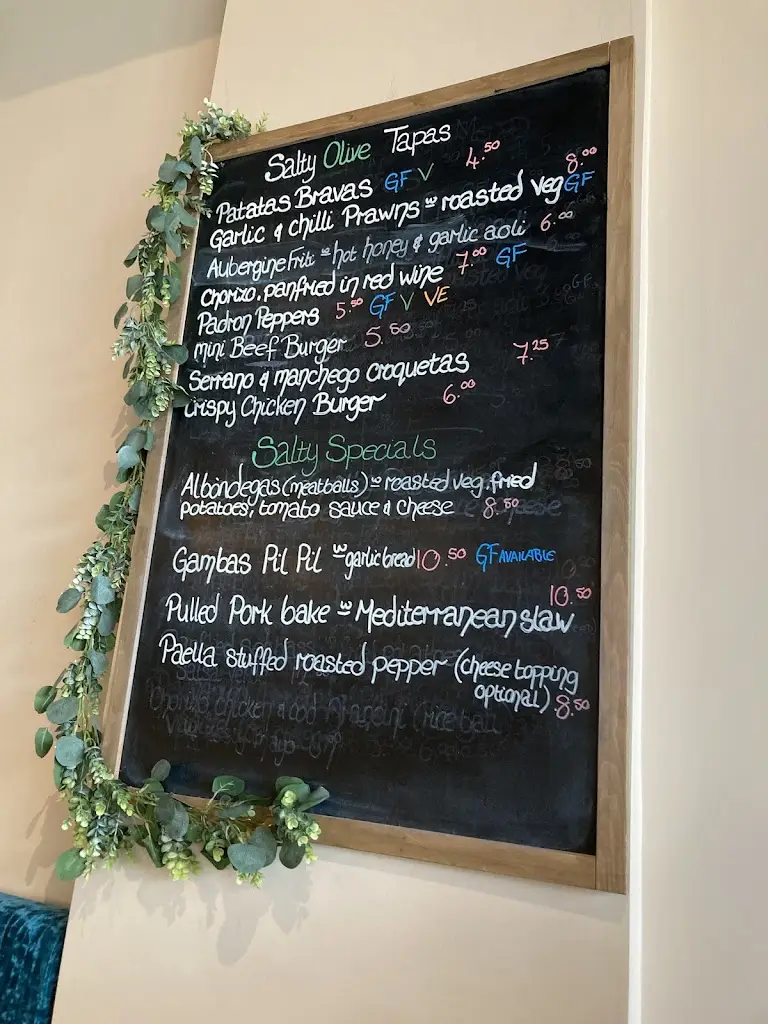 Salty Olive Tapas
Patatas Bravas GF V 4.50
Garlic & chilli Prawns w roasted veg GF 8.00
Aubergine Friti w hot honey & garlic aoli 6.00
Chorizo. panfried in red wine 7.00 GF
Padron Peppers 5.50 GF V VE
Mini Beef Burger 5.50
Serrano & manchego croquetas 7.25
Crispy Chicken Burger 6.00
Salty Specials
Albondegas (meatballs) w roasted veg, fried
potatoes, tomato sauce & cheese 8.50
Gambas Pil Pil w garlic bread 10.50 GF AVAILABLE
Pulled Pork bake w Mediterranean slaw 10.50
Paella stuffed roasted pepper (cheese topping
optional) 8.50